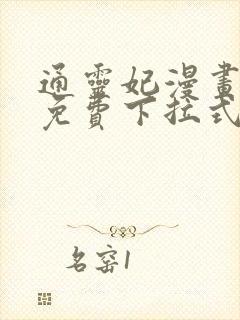 通靈妃漫畫
免費下拉式
名窑1